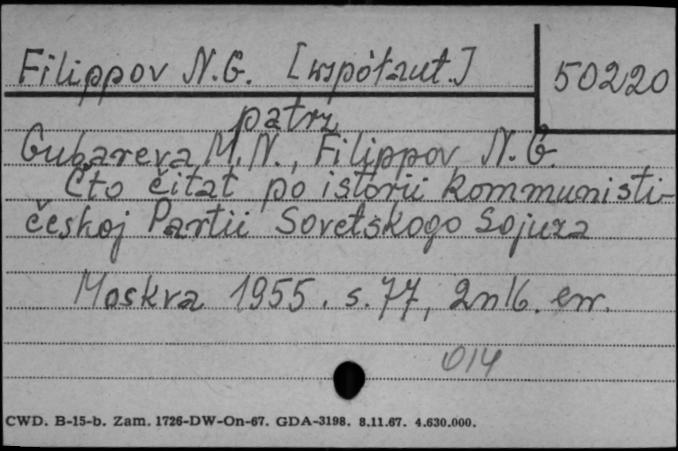 Filippov N.G. [współaut.]
50220
patrz
Gubareva M.N., Filippov N.G.
Čto čitat po istorii kommunisti-
českoj Partii Sovetskogo Sojuza
Moskva 1955. s. 77, 2nlb. err.
014
CWD. B-15-b. Zam. 1726-DW-On-67. GDA-3198. 8.11.67. 4.630.000.